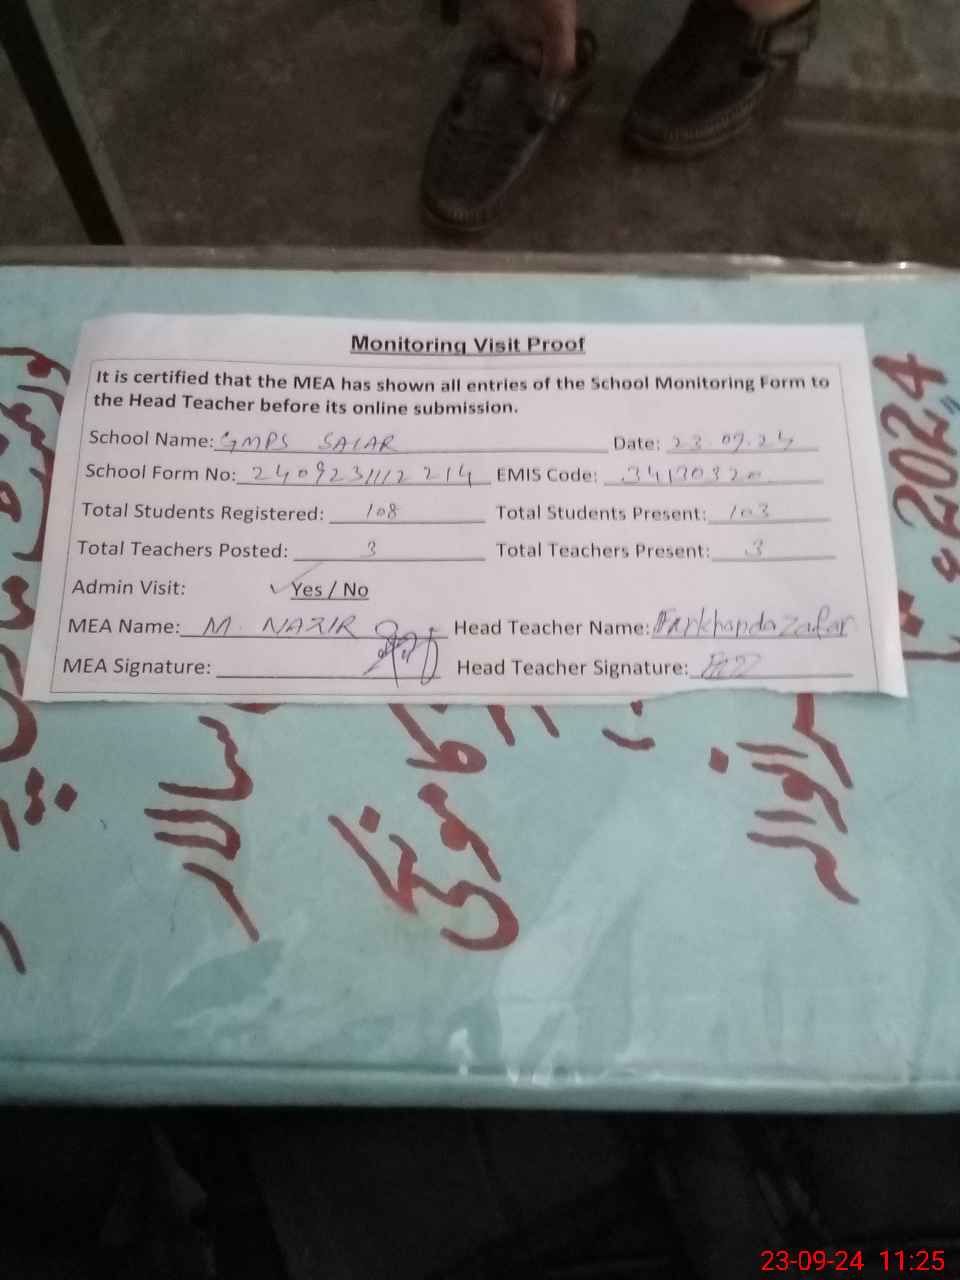 Monitoring Visit Proof
It is certified that the MEA has shown all entries of the School Monitoring Form to
the Head Teacher before its online submission.
School Name: GMPS SALAR Date: 23.09.24
School Form No: 24092311112214 EMIS Code: 34130320
Total Students Registered: 108 Total Students Present: 103
Total Teachers Posted: 3 Total Teachers Present: 3
Admin Visit: ✓ Yes / No
MEA Name: M. NAZIR Head Teacher Name: Farkhanda Zafar
MEA Signature: Head Teacher Signature:
2024
سالار
کامونکی
23-09-24 11:25